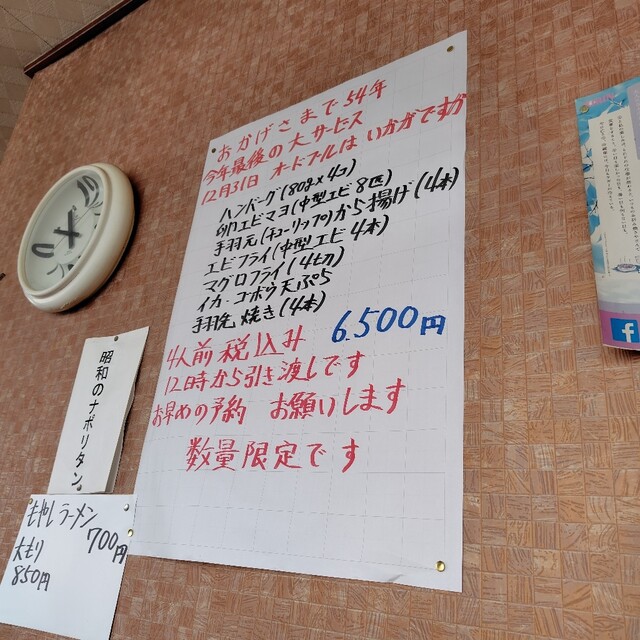 おかげさまで54年
今年最後の大サービス
12月31日 オードブルは いかがですか
ハンバーグ(80g×4コ)
卵エビマヨ(中型エビ8匹)
手羽元(チューリップ)から揚げ(4本)
エビフライ(中型エビ4本)
マグロフライ(4切)
イカ・ゴボウ天ぷら
手羽先 焼き(4本)
4人前 税込み 6.500円
12時から引き渡しです
お早めの予約 お願いします
数量限定です
昭和のナポリタン。
もやしラーメン
700円
大もり
850円
f